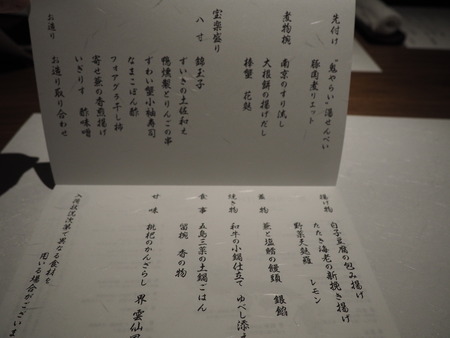 先付け
"鬼やらい"湯せんべい
豚角煮リエット
煮物椀
南京のすり流し
大根餅の揚げだし
椿蟹 花麩
宝楽盛り
八寸
錦玉子
ずいきの土佐和え
鴨燻製とりんごの串
ずわい蟹小袖寿司
なまこぽん酢
フォアグラと干し柿
寄せ蕪の香煎揚げ
いぎりす 酢味噌
お造り
お造り取り合わせ
揚げ物
白子豆腐の包み揚げ
たたき海老の新挽き揚げ
野菜天麩羅 レモン
蓋物
蕪と塩鱈の饅頭 銀餡
焼き物
和牛の小鍋仕立て ゆべし添え
食事
五島三菜の土鍋ごはん
留椀 香の物
甘味
枇杷のかんざらし 界 雲仙
入荷状況次第で異なる食材を
用いる場合がございま